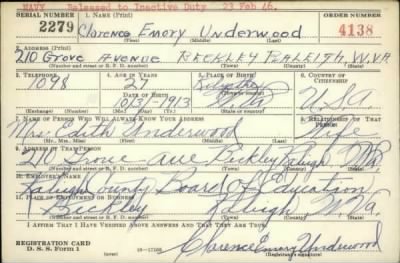 NAVY Released to Inactive Duty 23 Feb 46.
SERIAL NUMBER 1. NAME (Print) ORDER NUMBER
2279 Clarence Emory Underwood 4138
(First) (Middle) (Last)
2. ADDRESS (Print)
210 Grove Avenue BECKLEY RALEIGH W.VA
(Number and street or R. F. D. number) (Town) (County) (State)
3. TELEPHONE 4. AGE IN YEARS 5. PLACE OF BIRTH 6. COUNTRY OF CITIZENSHIP
1098 27
DATE OF BIRTH
10/3-1913 U.S.A.
(Exchange) (Number) (Mo.) (Day) (Yr.) (State or country)
7. NAME OF PERSON WHO WILL ALWAYS KNOW YOUR ADDRESS 8. RELATIONSHIP OF THAT PERSON
Mrs. Edith Underwood Wife
(Mr., Mrs., Miss) (First) (Middle) (Last)
9. ADDRESS OF THAT PERSON
210 Grove Ave Beckley Raleigh W.Va.
(Number and street or R. F. D. number) (Town) (County) (State)
10. EMPLOYER'S NAME
Raleigh County Board of Education
11. PLACE OF EMPLOYMENT OR BUSINESS
Beckley Raleigh W.Va.
(Number and street or R. F. D. number) (Town) (County) (State)
I AFFIRM THAT I HAVE VERIFIED ABOVE ANSWERS AND THAT THEY ARE TRUE.
REGISTRATION CARD
D. S. S. Form 1
Clarence Emory Underwood
(Registrant's signature)